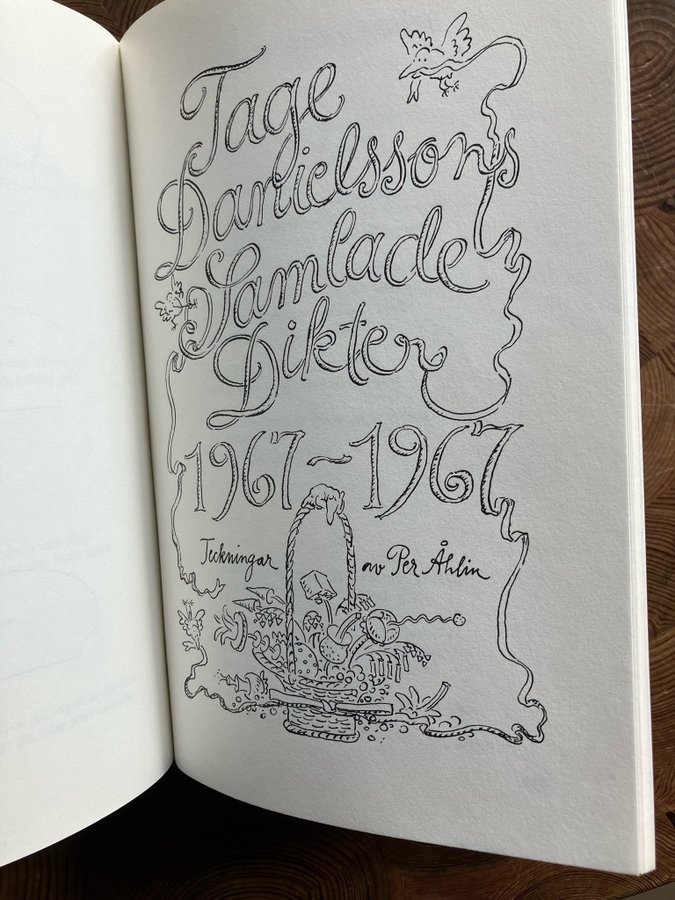 Tage
Danielssons
Samlade
Dikter
1967-1967
Teckningar av Per Åhlin